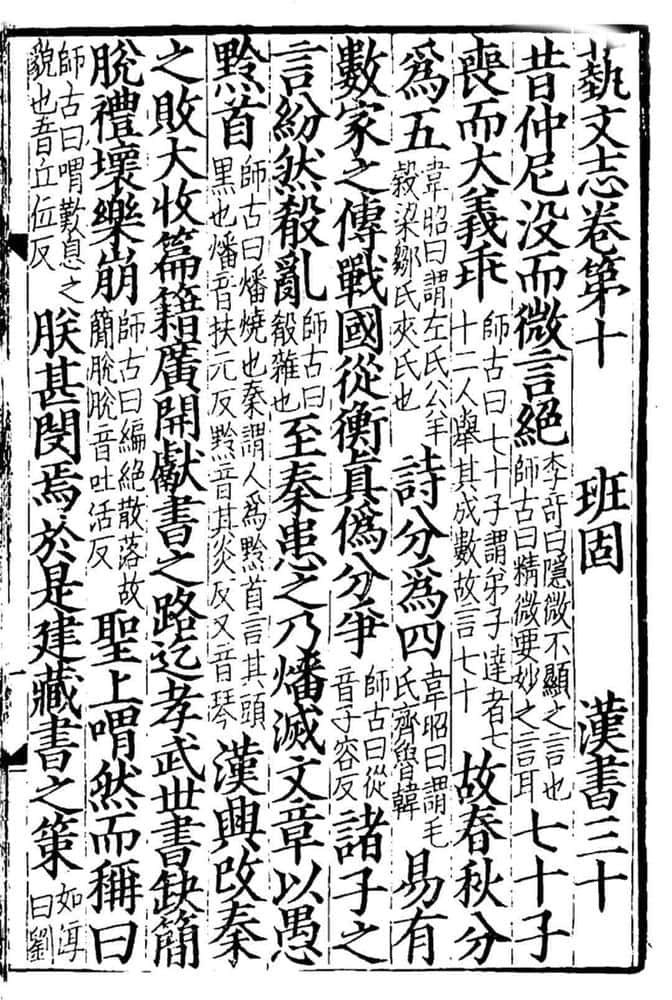 藝文志卷第十 班固 漢書三十
昔仲尼没而微言絕李奇曰隱微不顯之言也師古曰精微要妙之言耳七十子
喪而大義乖師古曰七十子謂弟子達者七十二人舉其成數故言七十故春秋分
爲五韋昭曰謂左氏公羊穀梁鄒氏夾氏也詩分爲四韋昭曰謂毛氏齊魯韓易有
數家之傳戰國從衡真僞分爭師古曰從音子容反諸子之
言紛然殽亂師古曰殽雜也至秦患之乃燔滅文章以愚
黔首師古曰燔燒也秦謂人爲黔首言其頭黑也燔音扶元反黔音其炎反又音琴漢興改秦
之敗大收篇籍廣開獻書之路迄孝武世書缺簡
脫禮壞樂崩師古曰編絕散落故簡脫脫音吐活反聖上喟然而稱曰
師古曰喟歎息之貌也音丘位反朕甚閔焉於是建藏書之策如淳曰劉